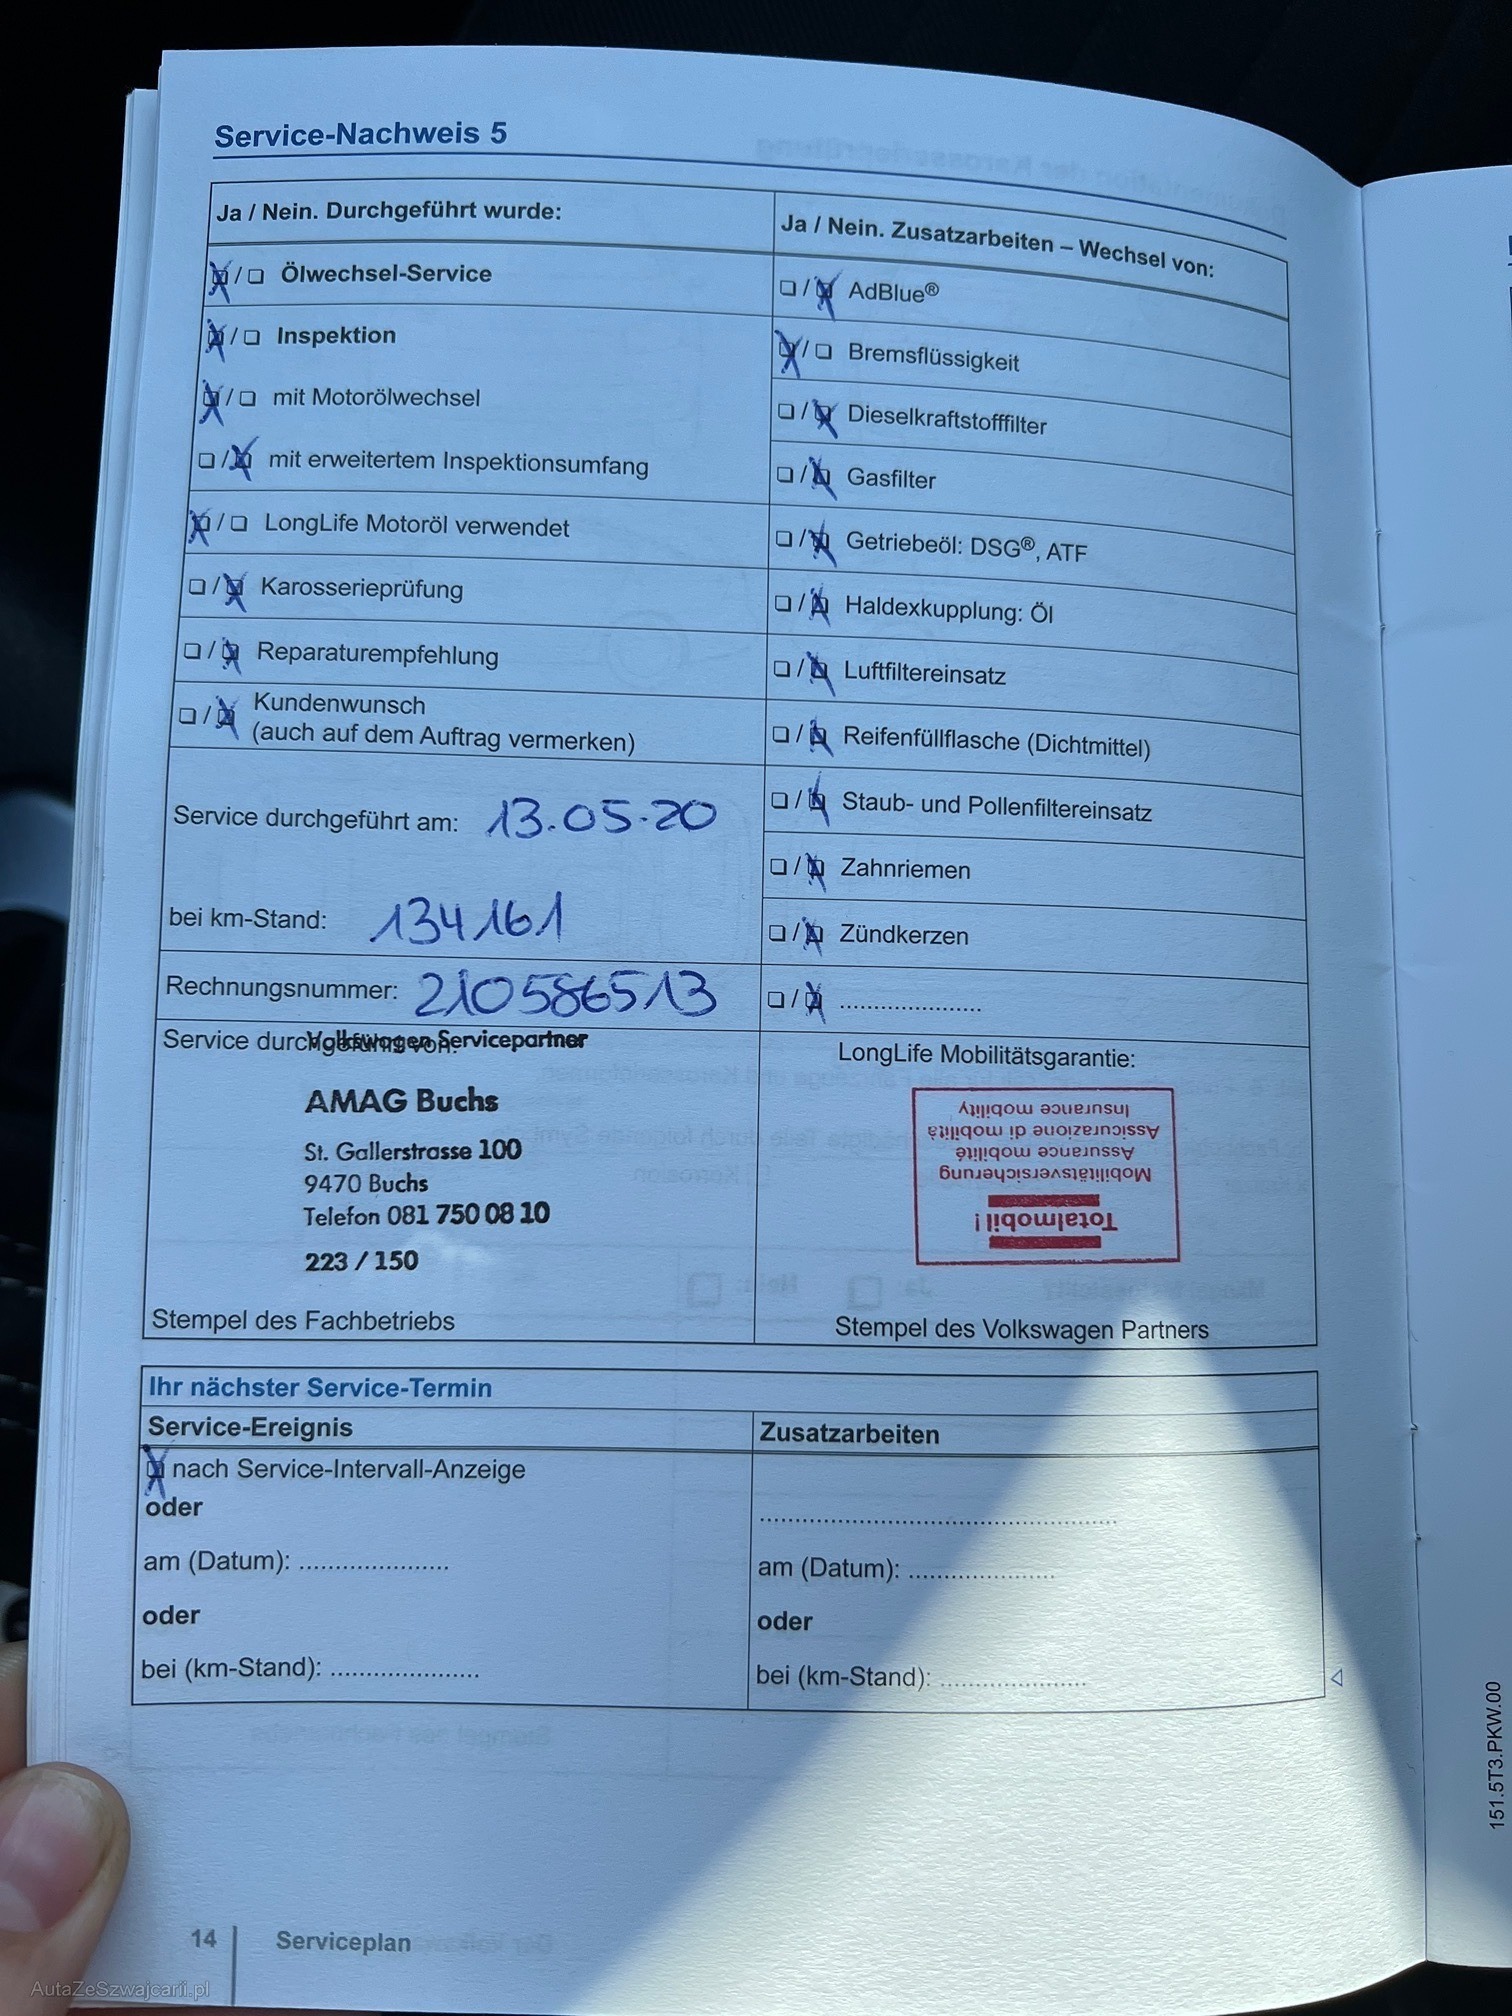 Service-Nachweis 5
Ja / Nein. Durchgeführt wurde:
❏ / ❏ Ölwechsel-Service
❏ / ❏ Inspektion
❏ / ❏ mit Motorölwechsel
❏ / ❏ mit erweitertem Inspektionsumfang
❏ / ❏ LongLife Motoröl verwendet
❏ / ❏ Karosserieprüfung
❏ / ❏ Reparaturempfehlung
❏ / ❏ Kundenwunsch
(auch auf dem Auftrag vermerken)
Service durchgeführt am: 13.05.20
bei km-Stand: 134161
Rechnungsnummer: 210586513
Ja / Nein. Zusatzarbeiten – Wechsel von:
❏ / ❏ AdBlue®
❏ / ❏ Bremsflüssigkeit
❏ / ❏ Dieselkraftstofffilter
❏ / ❏ Gasfilter
❏ / ❏ Getriebeöl: DSG®, ATF
❏ / ❏ Haldexkupplung: Öl
❏ / ❏ Luftfiltereinsatz
❏ / ❏ Reifenfüllflasche (Dichtmittel)
❏ / ❏ Staub- und Pollenfiltereinsatz
❏ / ❏ Zahnriemen
❏ / ❏ Zündkerzen
❏ / ❏ ....................
Service durchgeführt von:
Volkswagen Servicepartner
AMAG Buchs
St. Gallerstrasse 100
9470 Buchs
Telefon 081 750 08 10
223 / 150
Stempel des Fachbetriebs
LongLife Mobilitätsgarantie:
Totalmobil!
Mobilitätsversicherung
Assurance mobilité
Assicurazione di mobilità
Insurance mobility
Stempel des Volkswagen Partners
Ihr nächster Service-Termin
Service-Ereignis
❏ nach Service-Intervall-Anzeige
oder
am (Datum): .....................
oder
bei (km-Stand): .....................
Zusatzarbeiten
..................................................
am (Datum): .....................
oder
bei (km-Stand): .....................
14 Serviceplan
151.5T3.PKW.00
AutaZeSzwajcarii.pl